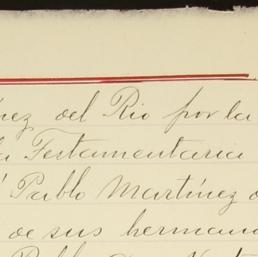 nez del Rio por la
la Testamentaria
Pablo Martínez d
de sus herman
Pablo